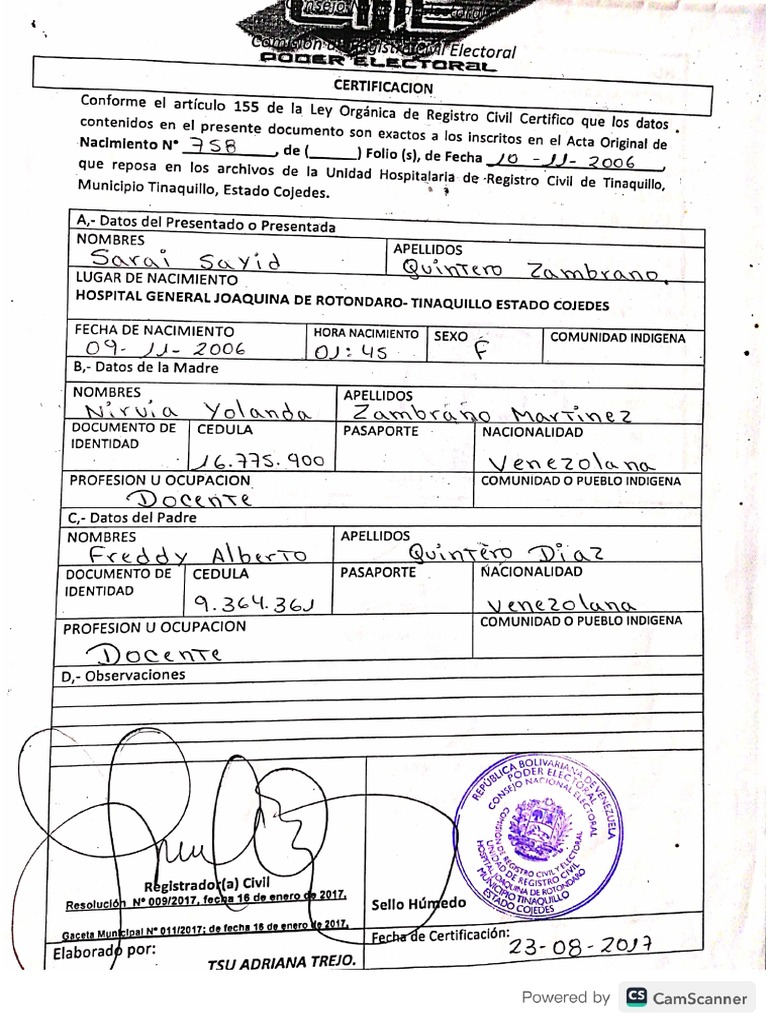 Consejo Nacional Electoral
Comisión de Registro Civil Electoral
PODER ELECTORAL
CERTIFICACION
Conforme el artículo 155 de la Ley Orgánica de Registro Civil Certifico que los datos
contenidos en el presente documento son exactos a los inscritos en el Acta Original de
Nacimiento N° 758, de (_____) Folio (s), de Fecha 10-11-2006,
que reposa en los archivos de la Unidad Hospitalaria de Registro Civil de Tinaquillo,
Municipio Tinaquillo, Estado Cojedes.
A,- Datos del Presentado o Presentada
NOMBRES APELLIDOS
Sarai Sayid Quintero Zambrano.
LUGAR DE NACIMIENTO
HOSPITAL GENERAL JOAQUINA DE ROTONDARO- TINAQUILLO ESTADO COJEDES
FECHA DE NACIMIENTO HORA NACIMIENTO SEXO COMUNIDAD INDIGENA
09-11-2006 01:45 F
B,- Datos de la Madre
NOMBRES APELLIDOS
Nirvia Yolanda Zambrano Martinez
DOCUMENTO DE IDENTIDAD CEDULA PASAPORTE NACIONALIDAD
16.775.900 Venezolana
PROFESION U OCUPACION COMUNIDAD O PUEBLO INDIGENA
Docente
C,- Datos del Padre
NOMBRES APELLIDOS
Freddy Alberto Quintero Diaz
DOCUMENTO DE IDENTIDAD CEDULA PASAPORTE NACIONALIDAD
9.364.361 Venezolana
PROFESION U OCUPACION COMUNIDAD O PUEBLO INDIGENA
Docente
D,- Observaciones
REPÚBLICA BOLIVARIANA DE VENEZUELA
PODER ELECTORAL
CONSEJO NACIONAL ELECTORAL
COMISIÓN DE REGISTRO CIVIL Y ELECTORAL
UNIDAD DE REGISTRO CIVIL
HOSPITAL JOAQUINA DE ROTONDARO
MUNICIPIO TINAQUILLO
ESTADO COJEDES
Registrador(a) Civil
Resolución N° 009/2017, fecha 16 de enero de 2017,
Sello Húmedo
Gaceta Municipal N° 011/2017; de fecha 16 de enero de 2017,
Fecha de Certificación:
Elaborado por:
23-08-2017
TSU ADRIANA TREJO.
Powered by CS CamScanner